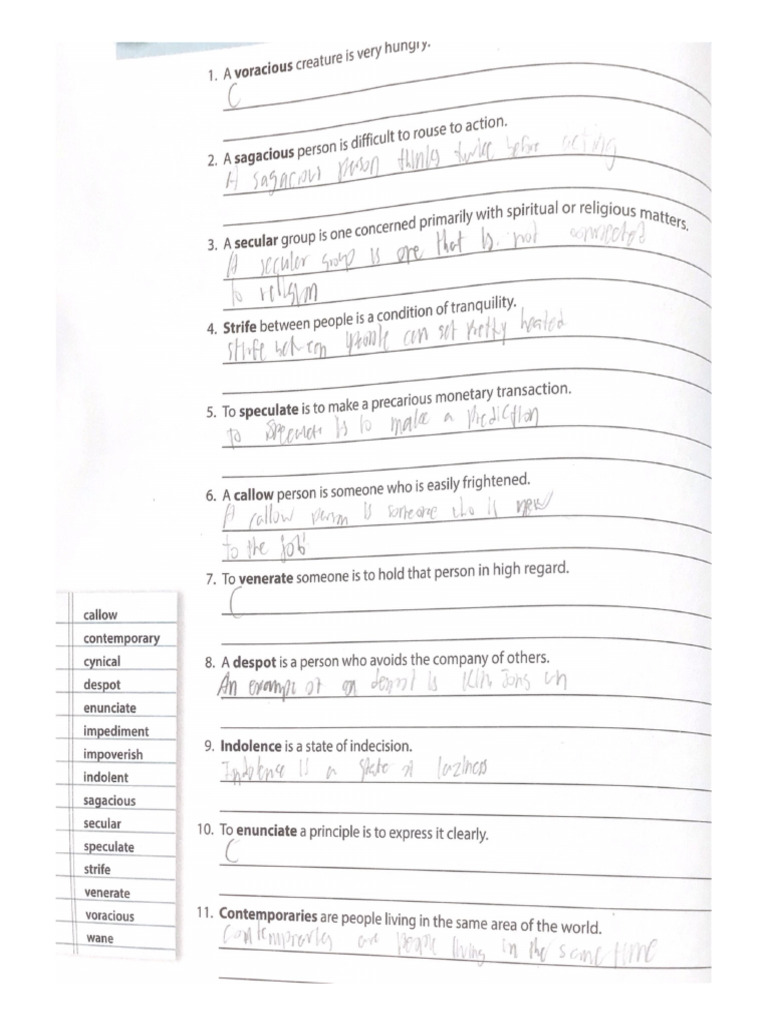 1. A voracious creature is very hungry.
C
2. A sagacious person is difficult to rouse to action.
A sagacious person thinks twice before acting
3. A secular group is one concerned primarily with spiritual or religious matters.
A secular group is one that is not connected
to religion
4. Strife between people is a condition of tranquility.
Strife between people can get pretty heated
5. To speculate is to make a precarious monetary transaction.
to speculate is to make a prediction
6. A callow person is someone who is easily frightened.
A callow person is someone who is new
to the job
7. To venerate someone is to hold that person in high regard.
C
8. A despot is a person who avoids the company of others.
An example of an despot is Kim Jong un
9. Indolence is a state of indecision.
Indolence is a state of laziness
10. To enunciate a principle is to express it clearly.
C
11. Contemporaries are people living in the same area of the world.
are people living in the same time
callow
contemporary
cynical
despot
enunciate
impediment
impoverish
indolent
sagacious
secular
speculate
strife
venerate
voracious
wane